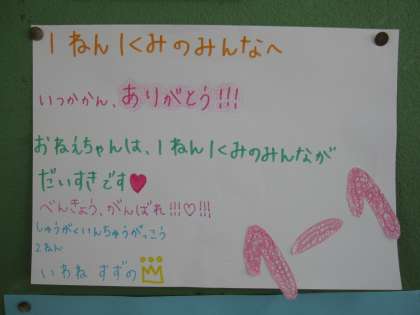 1ねん1くみのみんなへ
いつかかん、ありがとう!!!
おねえちゃんは、1ねん1くみのみんなが
だいすきです♥
べんきょう、がんばれ!!!♡!!!
しゅうがくいんちゅうがっこう
2ねん
いわね すずの